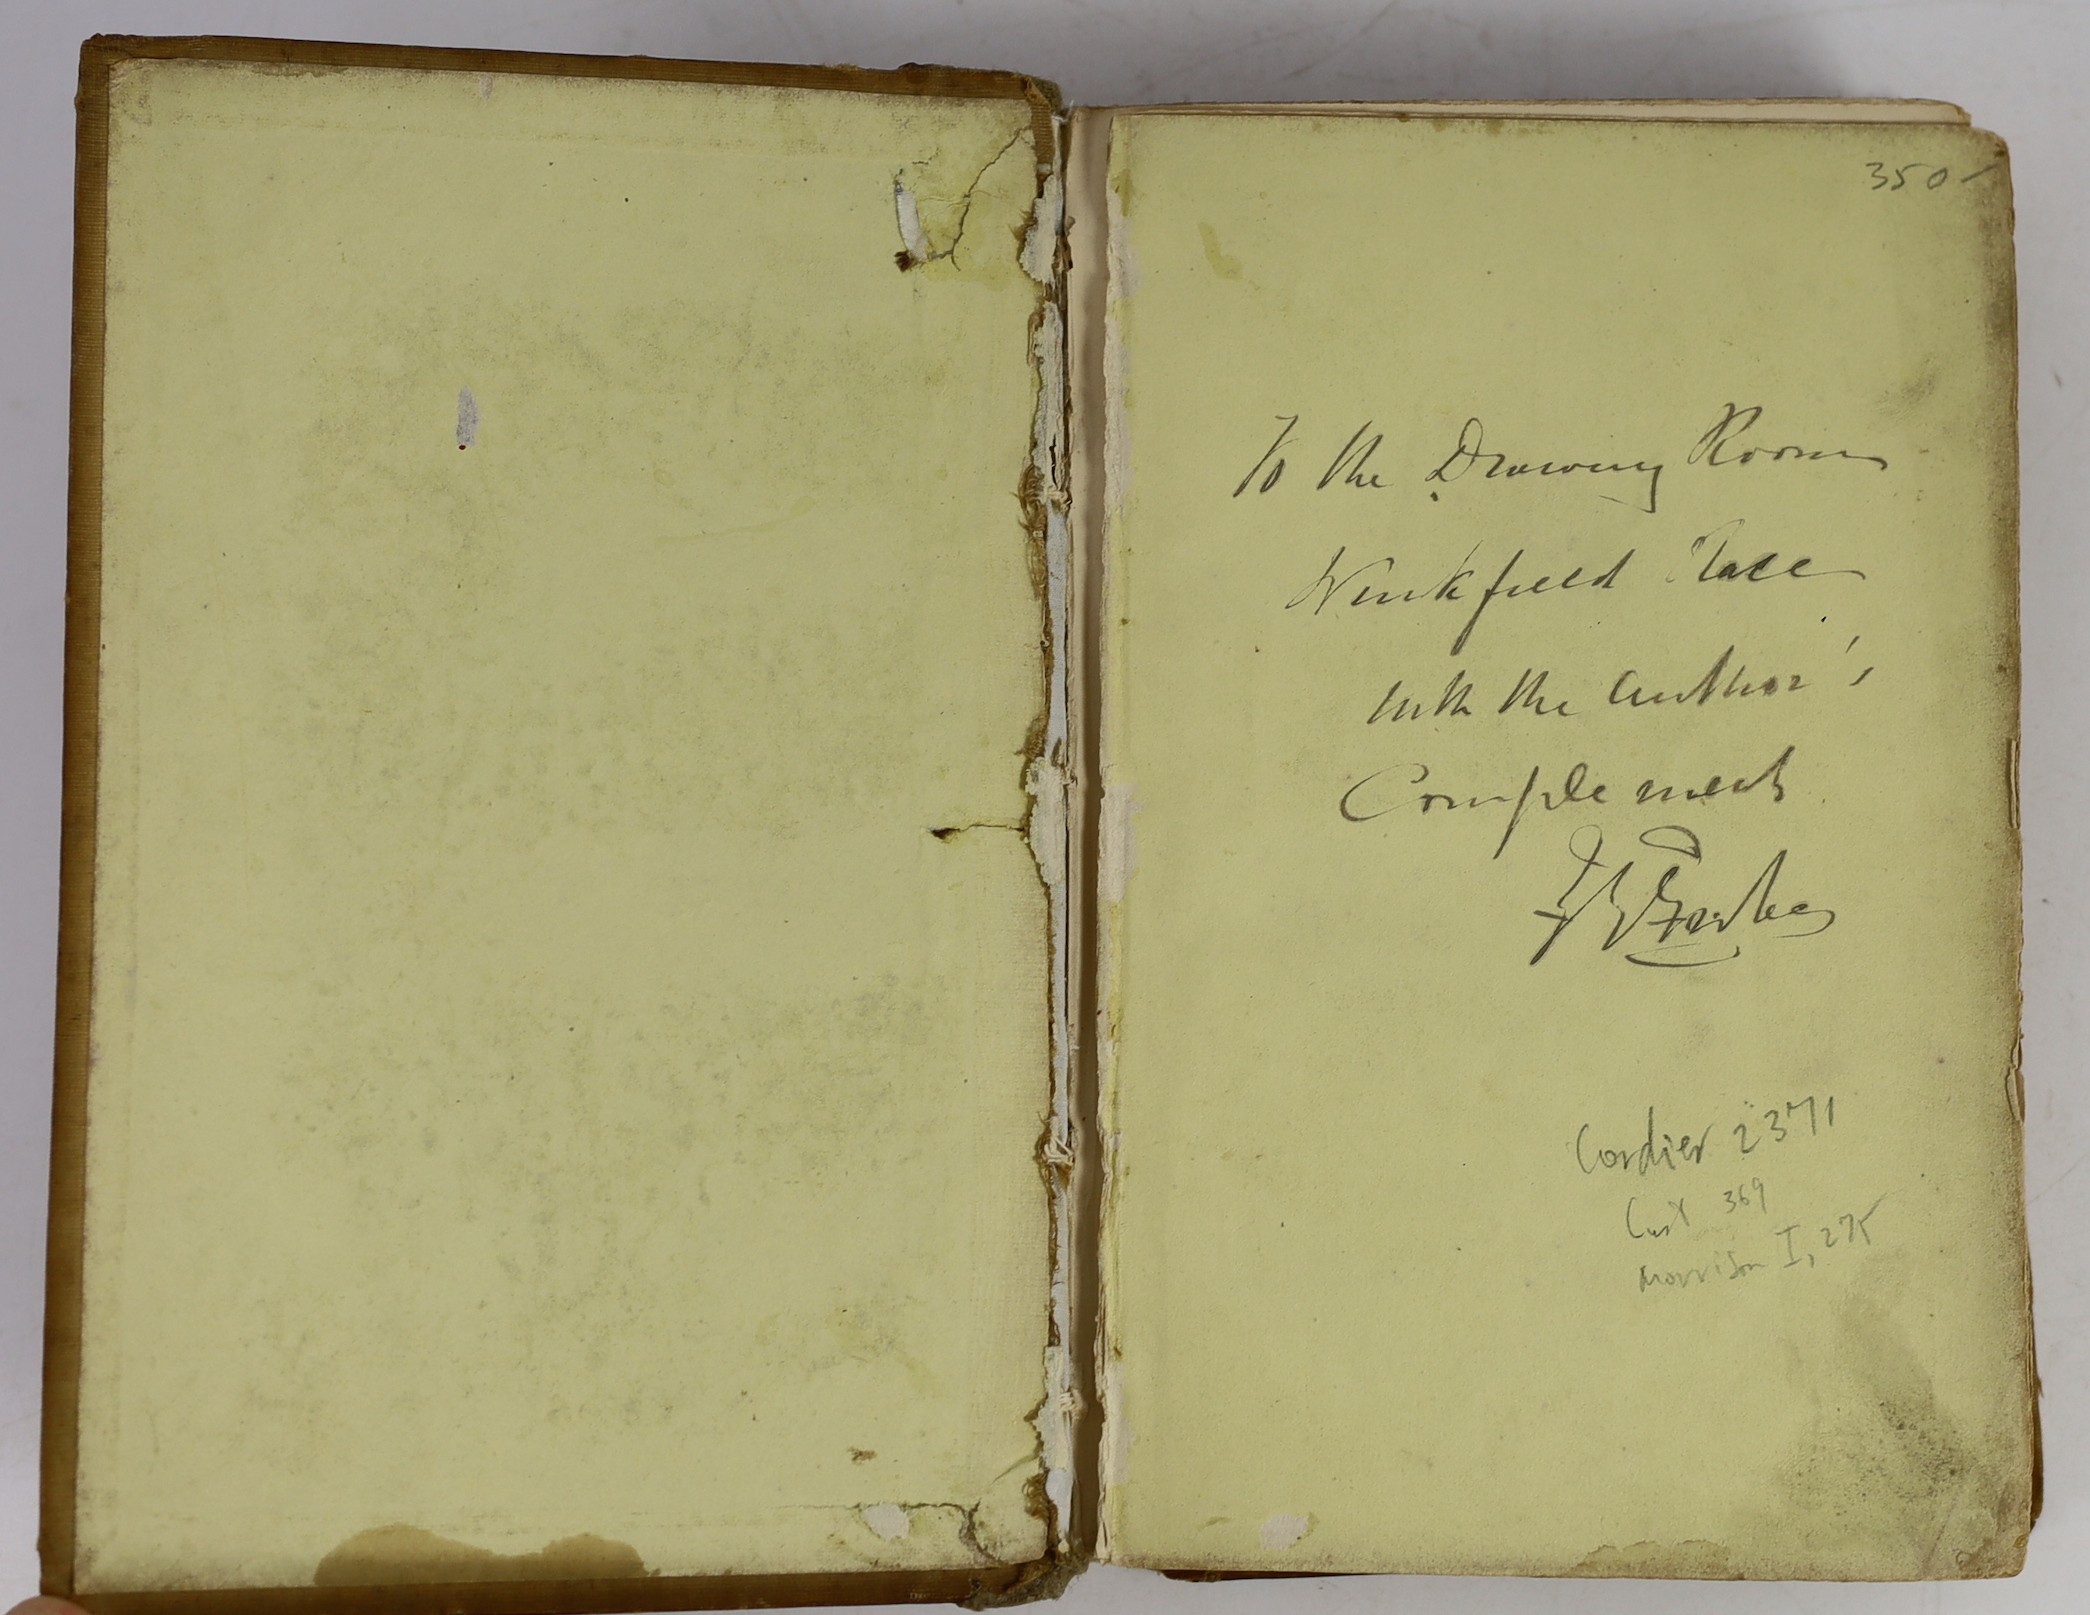 350-
To the Drawing Room
Winkfield Place
with the Author's
Complements
Cordier 2371
Cust 369
Morrison I, 275